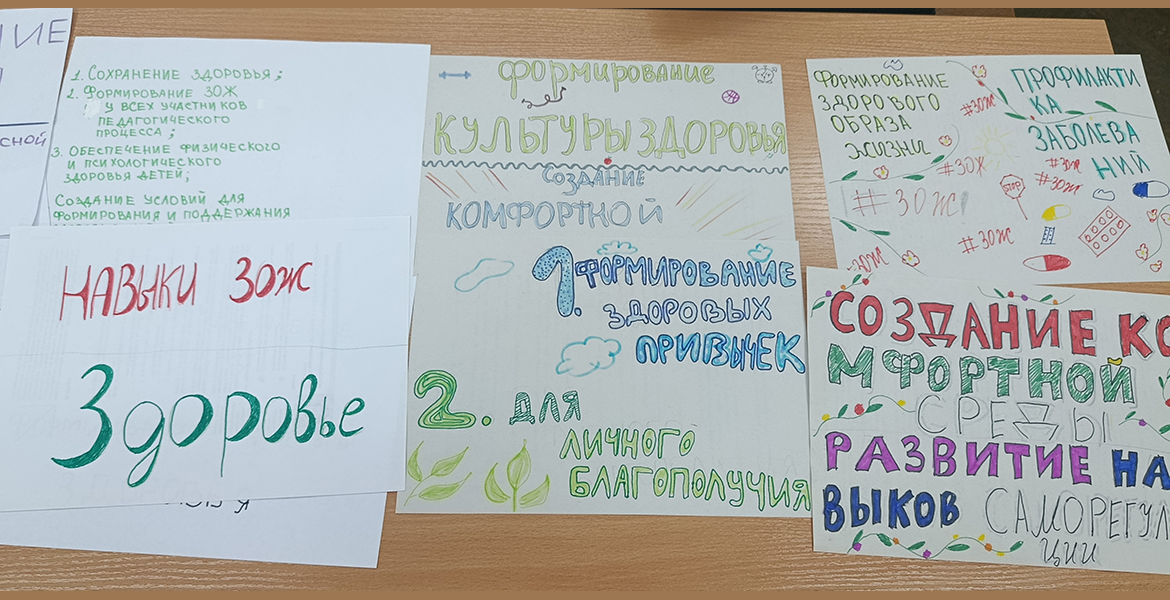 1. СОХРАНЕНИЕ ЗДОРОВЬЯ;
2. ФОРМИРОВАНИЕ ЗОЖ
У ВСЕХ УЧАСТНИКОВ
ПЕДАГОГИЧЕСКОГО
ПРОЦЕССА;
3. ОБЕСПЕЧЕНИЕ ФИЗИЧЕСКОГО
И ПСИХОЛОГИЧЕСКОГО
ЗДОРОВЬЯ ДЕТЕЙ;
СОЗДАНИЕ УСЛОВИЙ ДЛЯ
ФОРМИРОВАНИЯ И ПОДДЕРЖАНИЯ
НАВЫКИ ЗОЖ
Здоровье
ФОРМИРОВАНИЕ
КУЛЬТУРЫ ЗДОРОВЬЯ
СОЗДАНИЕ
КОМФОРТНОЙ
1. ФОРМИРОВАНИЕ
ЗДОРОВЫХ
ПРИВЫЧЕК
2. ДЛЯ
ЛИЧНОГО
БЛАГОПОЛУЧИЯ
ФОРМИРОВАНИЕ
ЗДОРОВОГО
ОБРАЗА
ЖИЗНИ
#ЗОЖ
ПРОФИЛАКТИ
КА
ЗАБОЛЕВА
НИЙ
#ЗОЖ
#ЗОЖ
#ЗОЖ
#ЗОЖ
STOP
#ЗОЖ
-ЗОЖ
СОЗДАНИЕ КО
МФОРТНОЙ
СРЕДЫ
РАЗВИТИЕ НА
ВЫКОВ САМОРЕГУЛ
ЦИИ